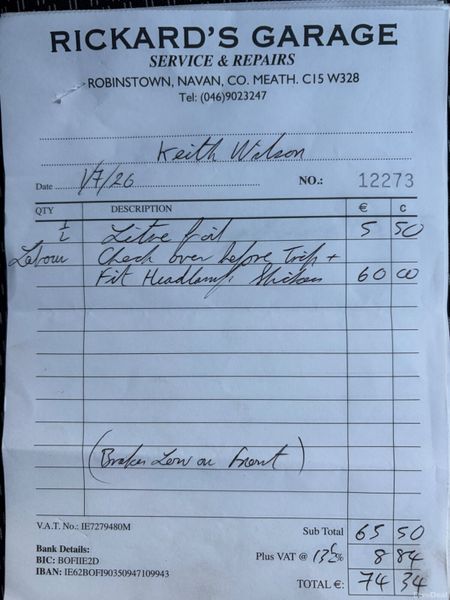 RICKARD'S GARAGE
SERVICE & REPAIRS
ROBINSTOWN, NAVAN, CO. MEATH. C15 W328
Tel: (046)9023247
Keith Wilson
Date 1/7/26 NO.: 12273
QTY DESCRIPTION € c
1/2 Litre oil 5 50
Labour Check over before Trip +
Fit Headlamp Stickers 60 00
(Brakes Low on Front)
V.A.T. No.: IE7279480M Sub Total 65 50
Bank Details:
BIC: BOFIIE2D Plus VAT @ 13.5% 8 84
IBAN: IE62BOFI90350947109943 TOTAL €: 74 34